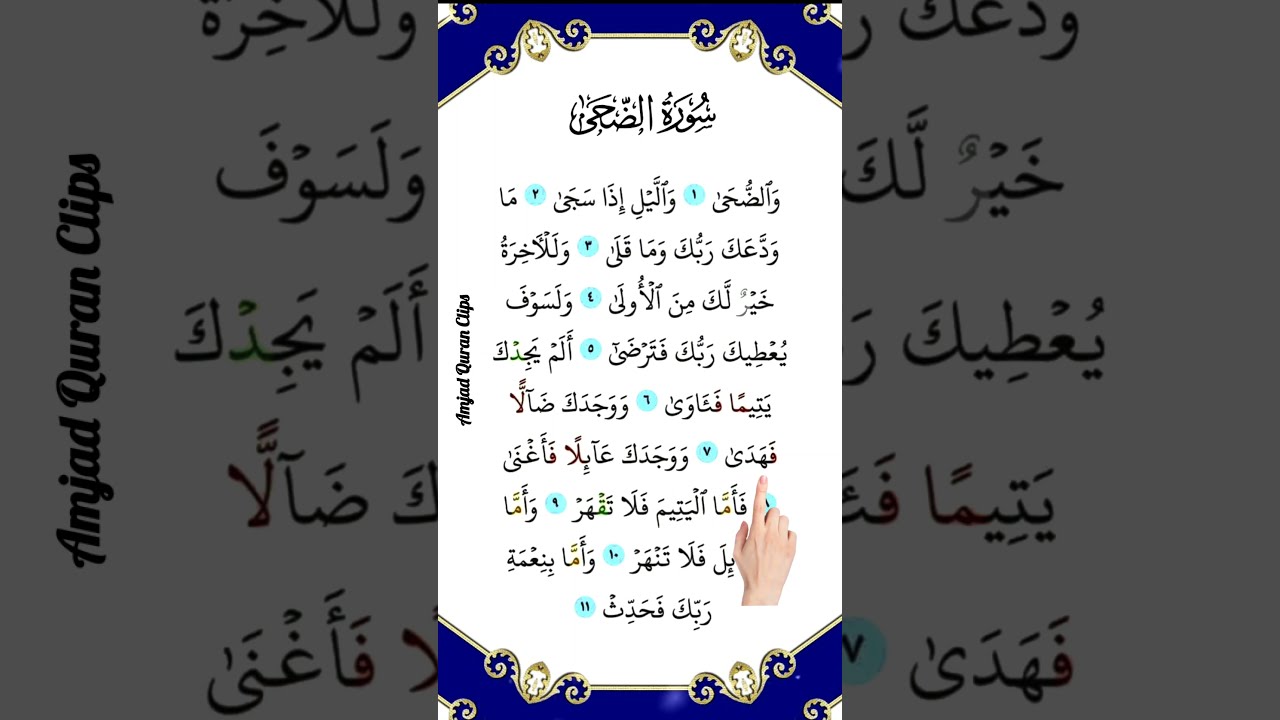 سُورَةُ الضُّحَىٰ
وَٱلضُّحَىٰ ١ وَٱلَّيْلِ إِذَا سَجَىٰ ٢ مَا
وَدَّعَكَ رَبُّكَ وَمَا قَلَىٰ ٣ وَلَلْـَٔاخِرَةُ
خَيْرٌ لَّكَ مِنَ ٱلْأُولَىٰ ٤ وَلَسَوْفَ
يُعْطِيكَ رَبُّكَ فَتَرْضَىٰٓ ٥ أَلَمْ يَجِدْكَ
يَتِيمًا فَـَٔاوَىٰ ٦ وَوَجَدَكَ ضَآلًّا
فَهَدَىٰ ٧ وَوَجَدَكَ عَآئِلًا فَأَغْنَىٰ
٨ فَأَمَّا ٱلْيَتِيمَ فَلَا تَقْهَرْ ٩ وَأَمَّا
ئِلَ فَلَا تَنْهَرْ ١٠ وَأَمَّا بِنِعْمَةِ
رَبِّكَ فَحَدِّثْ ١١
Amjad Quran Clips